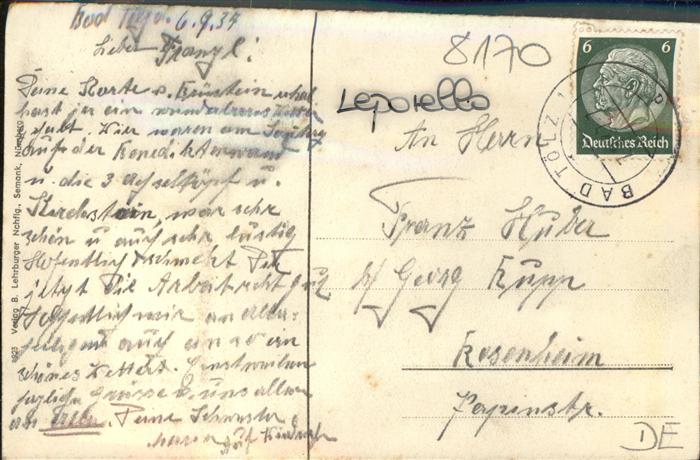 Bad Tölz, 6.9.34
Lieber Franzl!
Deine Karte v. erhal
hast ja ein wunderbares Wetter
gehabt. Wir waren am Sonntag
auf der Benediktenwand
u. die 3 Achselköpf u.
Kirchstein, war sehr
schön u. auch sehr lustig
Hoffentlich schmeckt Dir
jetzt die Arbeit recht gut
Hoffentlich wir an aller-
heiligen auch ein so ein
schönes Wetter. Einstweilen
Grüsse v. uns allen
Deine Schwester
Maria
8923 Verlag B. Lehrburger Nchflg., Semank, Nürnberg
8170
Leporello
An Herrn
Franz Huber
b/ Georg Rupp
Rosenheim
Papinstr.
DE
6 6
Deutsches Reich
BAD TÖLZ 1